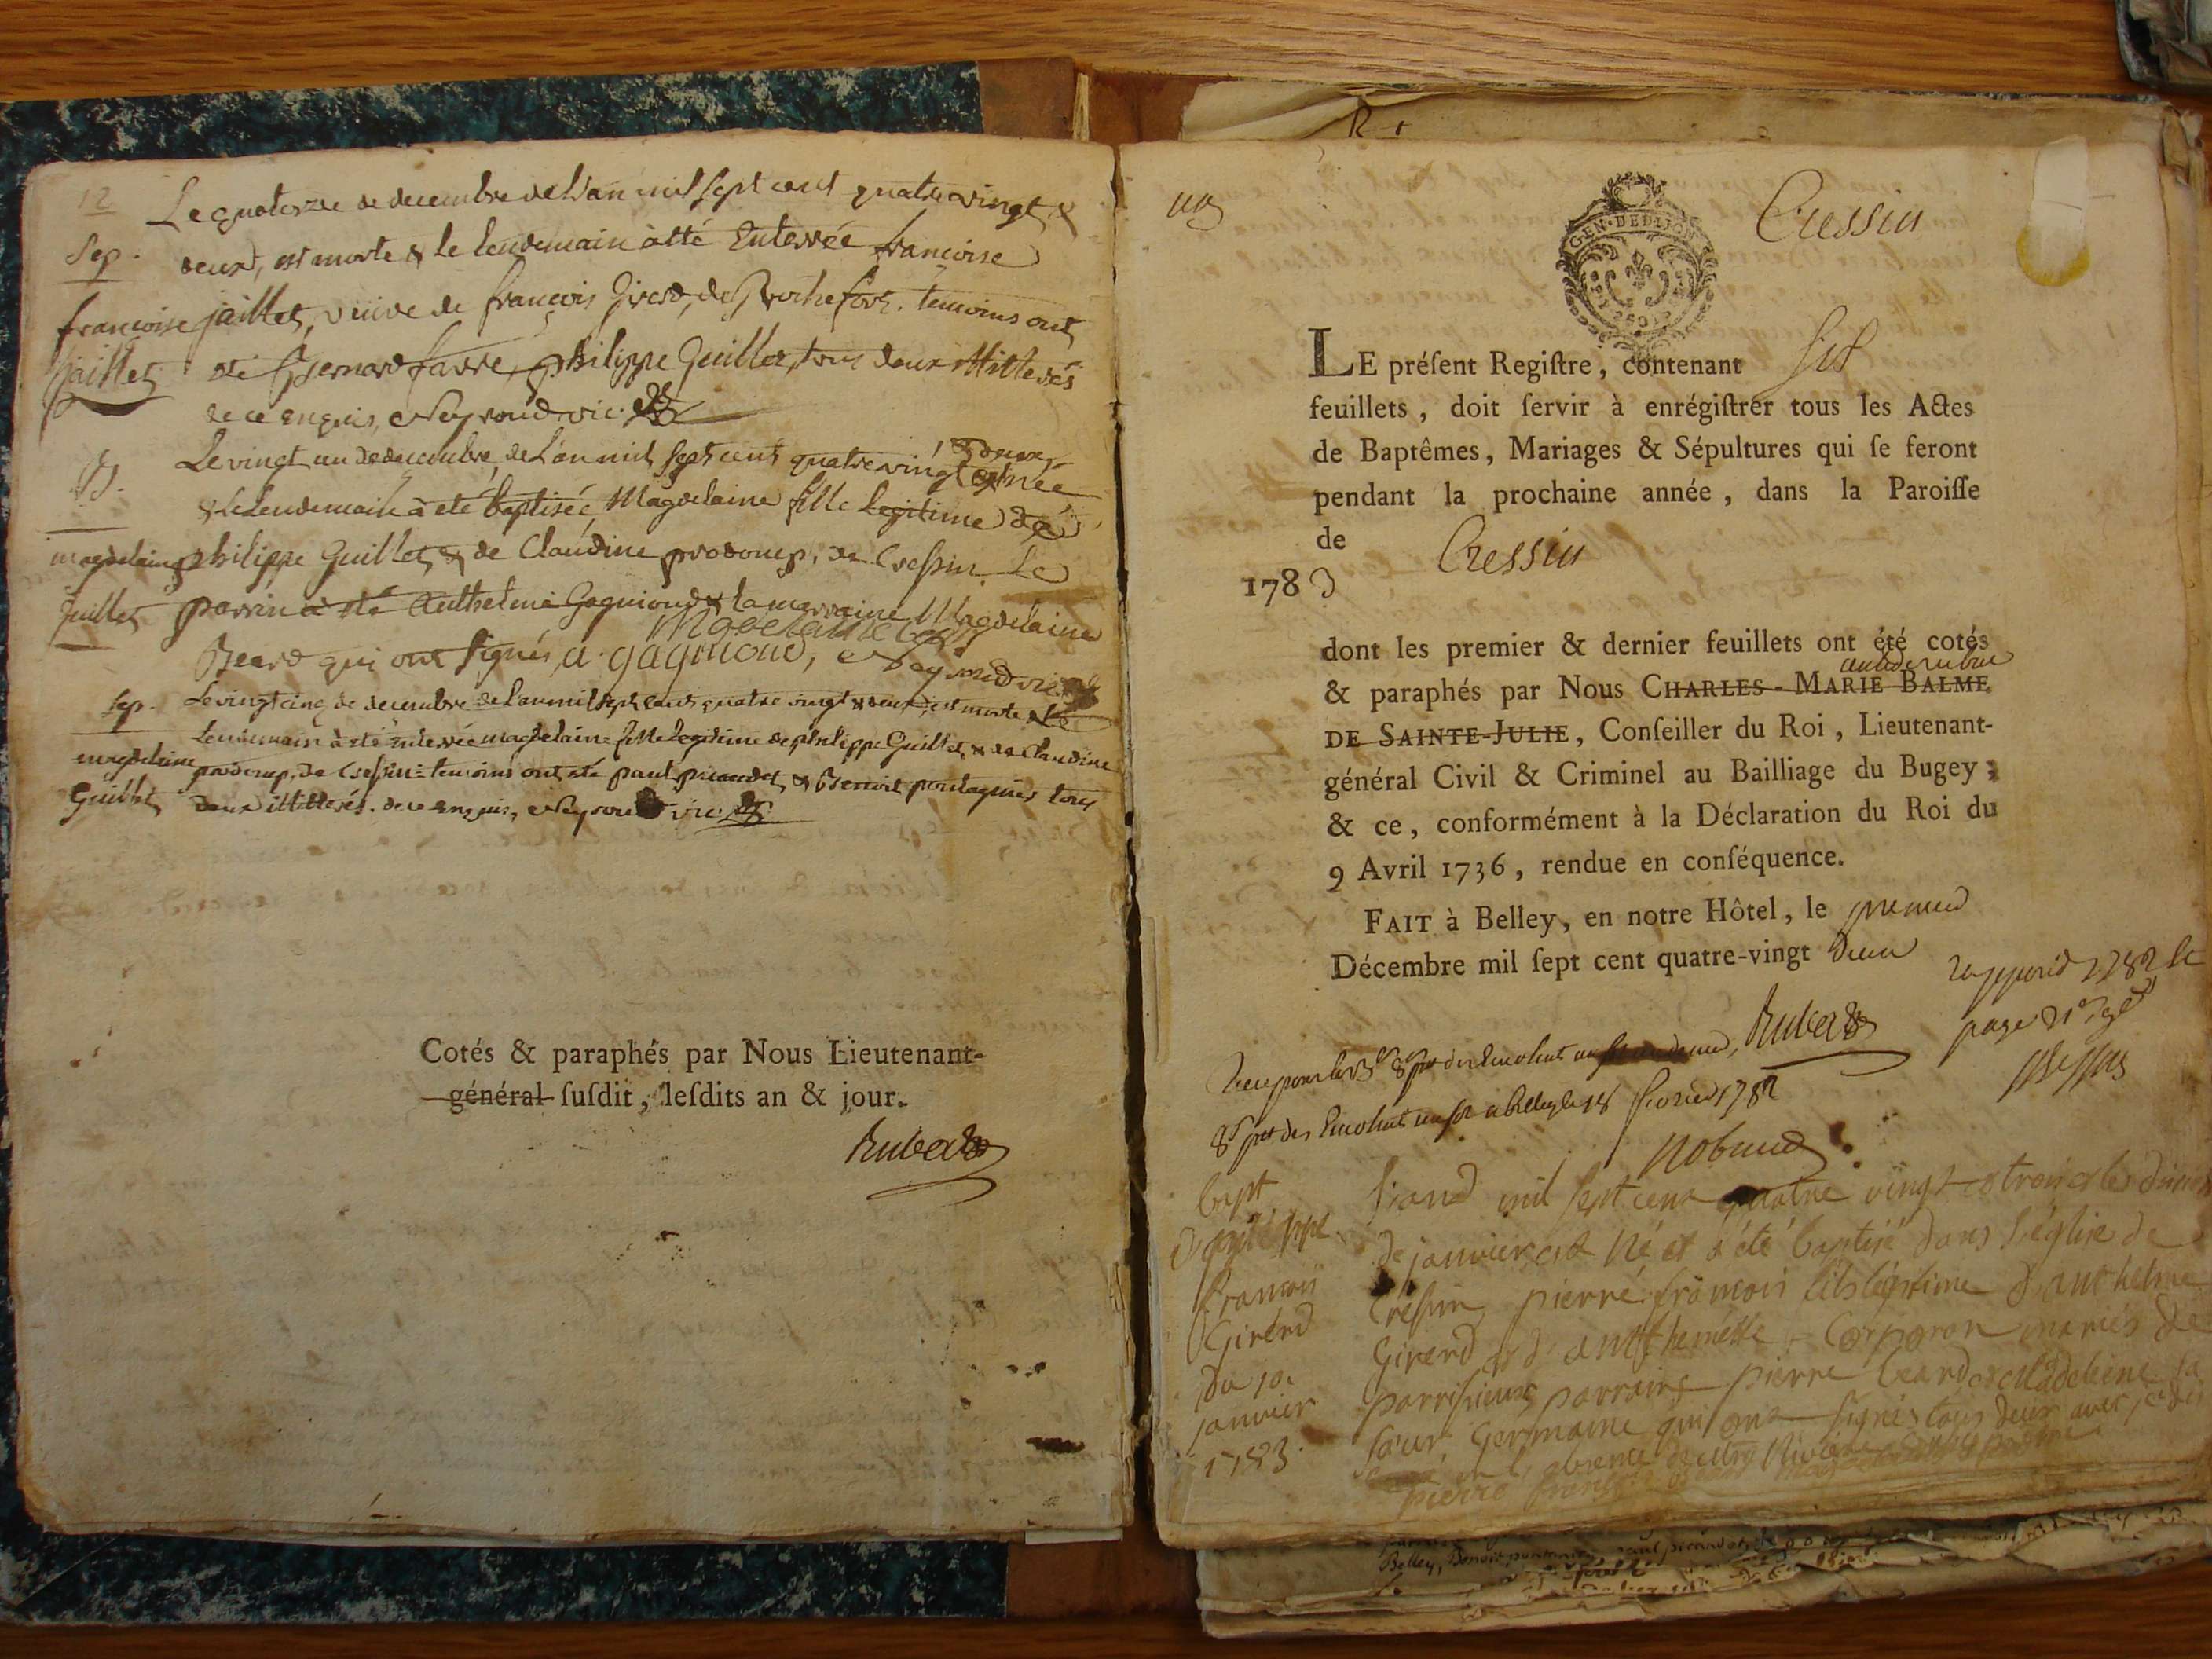 12
Le quatorze de decembre de L'an mil sept cent quatre vingt &
Sep.
deux, est morte & le lendemain à été Enterrée francoise
francoise jaillet, veuve de francois Girerd, de Rochefort. temoins ont
jaillet
été Bernard favre, philippe Guillet, tous deux illitterés
de ce enquis, Neyroud vic.
B.
Le vingt un de decembre, de L'an mil sept cent quatre vingt & deux, est née
& le Lendemain à eté baptisée Magdelaine fille Legitime de
magdelaine philippe Guillet & de Claudine prodoup, de Cressin. Le
Guillet parrin à été Anthelme Gagniond & la marraine Magdelaine
Beard qui ont signés, a. gagniond,
Neyroud vic.
Sep.
Le vingt cinq de decembre de L'an mil sept cent quatre vingt & deux, est morte & Le
Lendemain à été enterrée magdelaine fille legitime de philippe Guillet, & de Claudine
magdelaine prodoup, de Cressin: temoins ont été paul picardet & Benoit pontagnier tous
Guillet deux illitterés. de ce enquis, Neyroud vic.
Cotés & paraphés par Nous Lieutenant-
général susdit, lesdits an & jour.
GEN·DE DIJON
Cressin
LE présent Registre, contenant six
feuillets, doit servir à enrégistrer tous les Actes
de Baptêmes, Mariages & Sépultures qui se feront
pendant la prochaine année, dans la Paroisse
de Cressin
1783
dont les premier & dernier feuillets ont été cotés
& paraphés par Nous CHARLES-MARIE BALME
DE SAINTE-JULIE, Conseiller du Roi, Lieutenant-
général Civil & Criminel au Bailliage du Bugey;
& ce, conformément à la Déclaration du Roi du
9 Avril 1736, rendue en conséquence.
FAIT à Belley, en notre Hôtel, le premier
Décembre mil sept cent quatre-vingt deux
1782
page
1782
bapt
francois
Girerd
du 10.
janvier
1783.
L'an mil sept cent quatre vingt et trois et le
de janvier est né et a été baptisé dans l'église de
Cressin pierre francois fils légitime d'anthelme
Girerd et d'anthemette Corporon mariés de
parrain pierre beard et Madeleine sa
sœur germaine qui ont signés tous deux avec
en l'absence de
Belley, Benoit